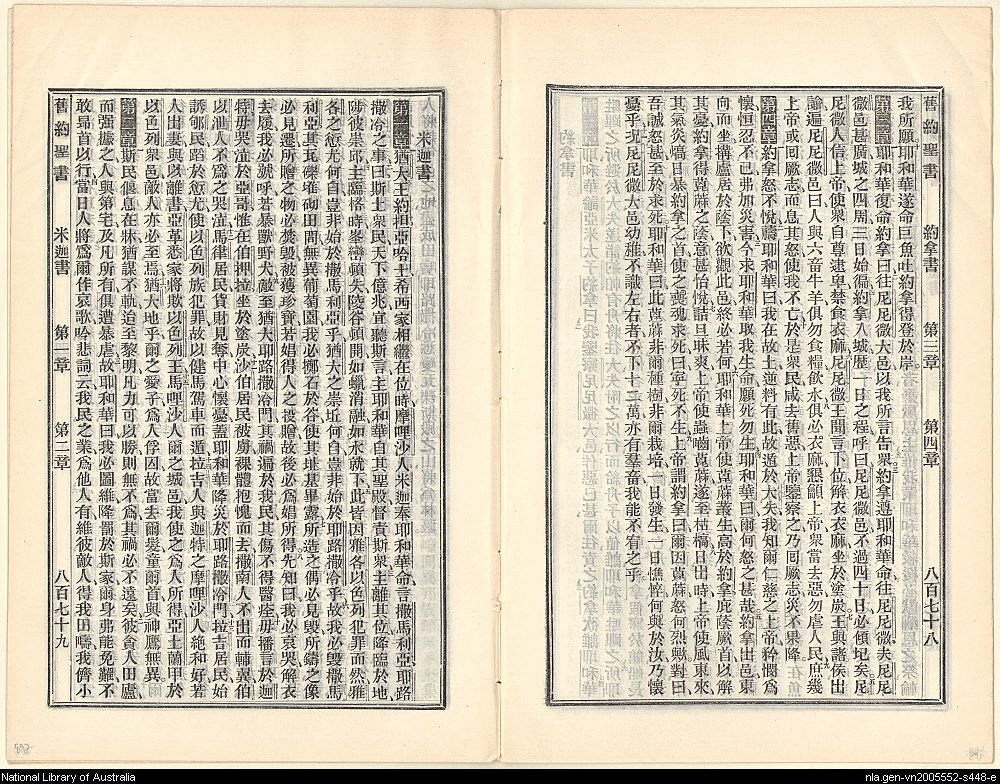 舊約聖書 約拿書 第三章 第四章 八百七十八
我所願耶和華遂命巨魚吐約拿得登於岸
第三章耶和華復命約拿曰往尼尼微大邑以我所言告衆約拿遵耶和華命往尼尼微夫尼尼
微邑甚廣城之四周三日始徧約拿入城歷一日之程呼曰尼尼微邑不過四十日必傾圮矣尼
尼微人信上帝使衆自尊逮卑禁食衣麻尼尼微王聞言下位解衣衣麻坐於塗炭王與諸侯出
諭遍尼尼微邑曰人與六畜牛羊俱勿食糧飲水俱必衣麻懇籲上帝衆當去惡勿虐人民庶幾
上帝或回厥志而息其怒使我不亡於是衆民咸去舊惡上帝鑒察之乃回厥志災不果降
第四章約拿怒不悅禱耶和華曰我在故土逆料有此故遁於大失我知爾仁慈之上帝矜憫爲
懷恒忍不已弗加災害今求耶和華取我生命願死勿生耶和華曰爾何怒之甚哉約拿出邑東
向而坐構廬居於蔭下欲觀此邑終必若何耶和華上帝使萆蔴叢生高於約拿庇蔭厥首以解
其憂約拿得萆蔴之蔭意甚怡悅詰旦昧爽上帝使蟲嚙萆蔴遂至枯槁日出時上帝使風東來
其氣炎熇日暴約拿之首使之喪魂求死曰寧死不生上帝謂約拿曰爾因萆蔴怒何烈歟對曰
吾誠怒甚至於求死耶和華曰此萆蔴非爾種樹非爾栽培一日發生一日憔悴何與於汝乃懷
憂乎況尼尼微大邑幼稚不識左右者不下十二萬亦有羣畜我能不宥之乎
米迦書
第一章猶大王約坦亞哈士希西家相繼在位時摩哩沙人米迦奉耶和華命言撒馬利亞耶路
撒冷之事曰斯土衆民天下億兆宜聽斯言主耶和華自其聖殿督責斯衆主離其位降臨於地
陟彼崇邱主臨格時峯巒頓失陵谷頓開如蠟消融如水就下此皆因雅各以色列犯罪而然雅
各之愆尤何自豈非始於撒馬利亞乎猶大之崇坵何自豈非始於耶路撒冷乎故我必毀撒馬
利亞其瓦礫堆砌田間無異葡萄園我必擲石於谷使其址基畢露所造之偶必見毀所鑄之像
必見遷所贈之物必焚毀彼獲珍寶若娼得人之投贈故後必爲娼所得先知曰我必哀哭解衣
去履我必號呼若暴獸野犬敵至猶大耶路撒冷門其禍遍於我民其傷不得醫痊毋播言於迦
特毋哭泣於亞哥惟在伯押拉坐於塗炭沙伯居民被虜裸體抱愧而去撒南人不出而輔翼伯
以泄人不爲之哭泣馬律居民貨財見奪中心懷憂蓋耶和華降災於耶路撒冷門拉吉居民始
誘郇民蹈於愆尤使以色列族犯罪故以健馬駕車而遁拉吉人與迦特之摩哩沙人絶和好若
人出妻與以離書亞革悉家將欺以色列王馬哩沙人爾之城邑我使之爲人所得亞土蘭甲於
以色列衆邑敵人亦必至焉猶大地乎爾之愛子爲人俘囚故當去爾髮童爾首與神鷹無異
第二章斯民偃息在牀猶謀不軌迨至黎明凡力可以勝則無不爲其禍必不遠矣彼貪人田廬
而强據之人與第宅及凡所有俱遭暴虐故耶和華曰我必圖維降罰於斯家爾身弗能免難不
敢昂首以行當日人將爲爾作哀歌吟悲詞云我民之業爲他人有維彼敵人得我田疇我儕小
舊約聖書 米迦書 第一章 第二章 八百七十九
National Library of Australia
nla.gen-vn2005552-s448-e